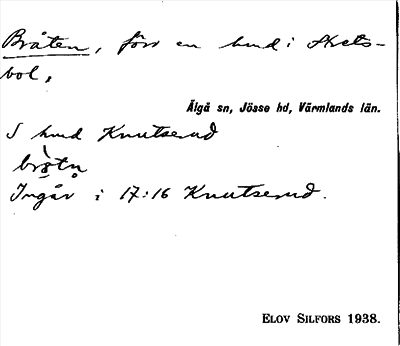 Bråten, förr en hmd i Skets-
bol,
Älgå sn, Jösse hd, Värmlands län.
I hmd Knutserud
Ingår i 17:16 Knutserud.
ELOV SILFORS 1938.